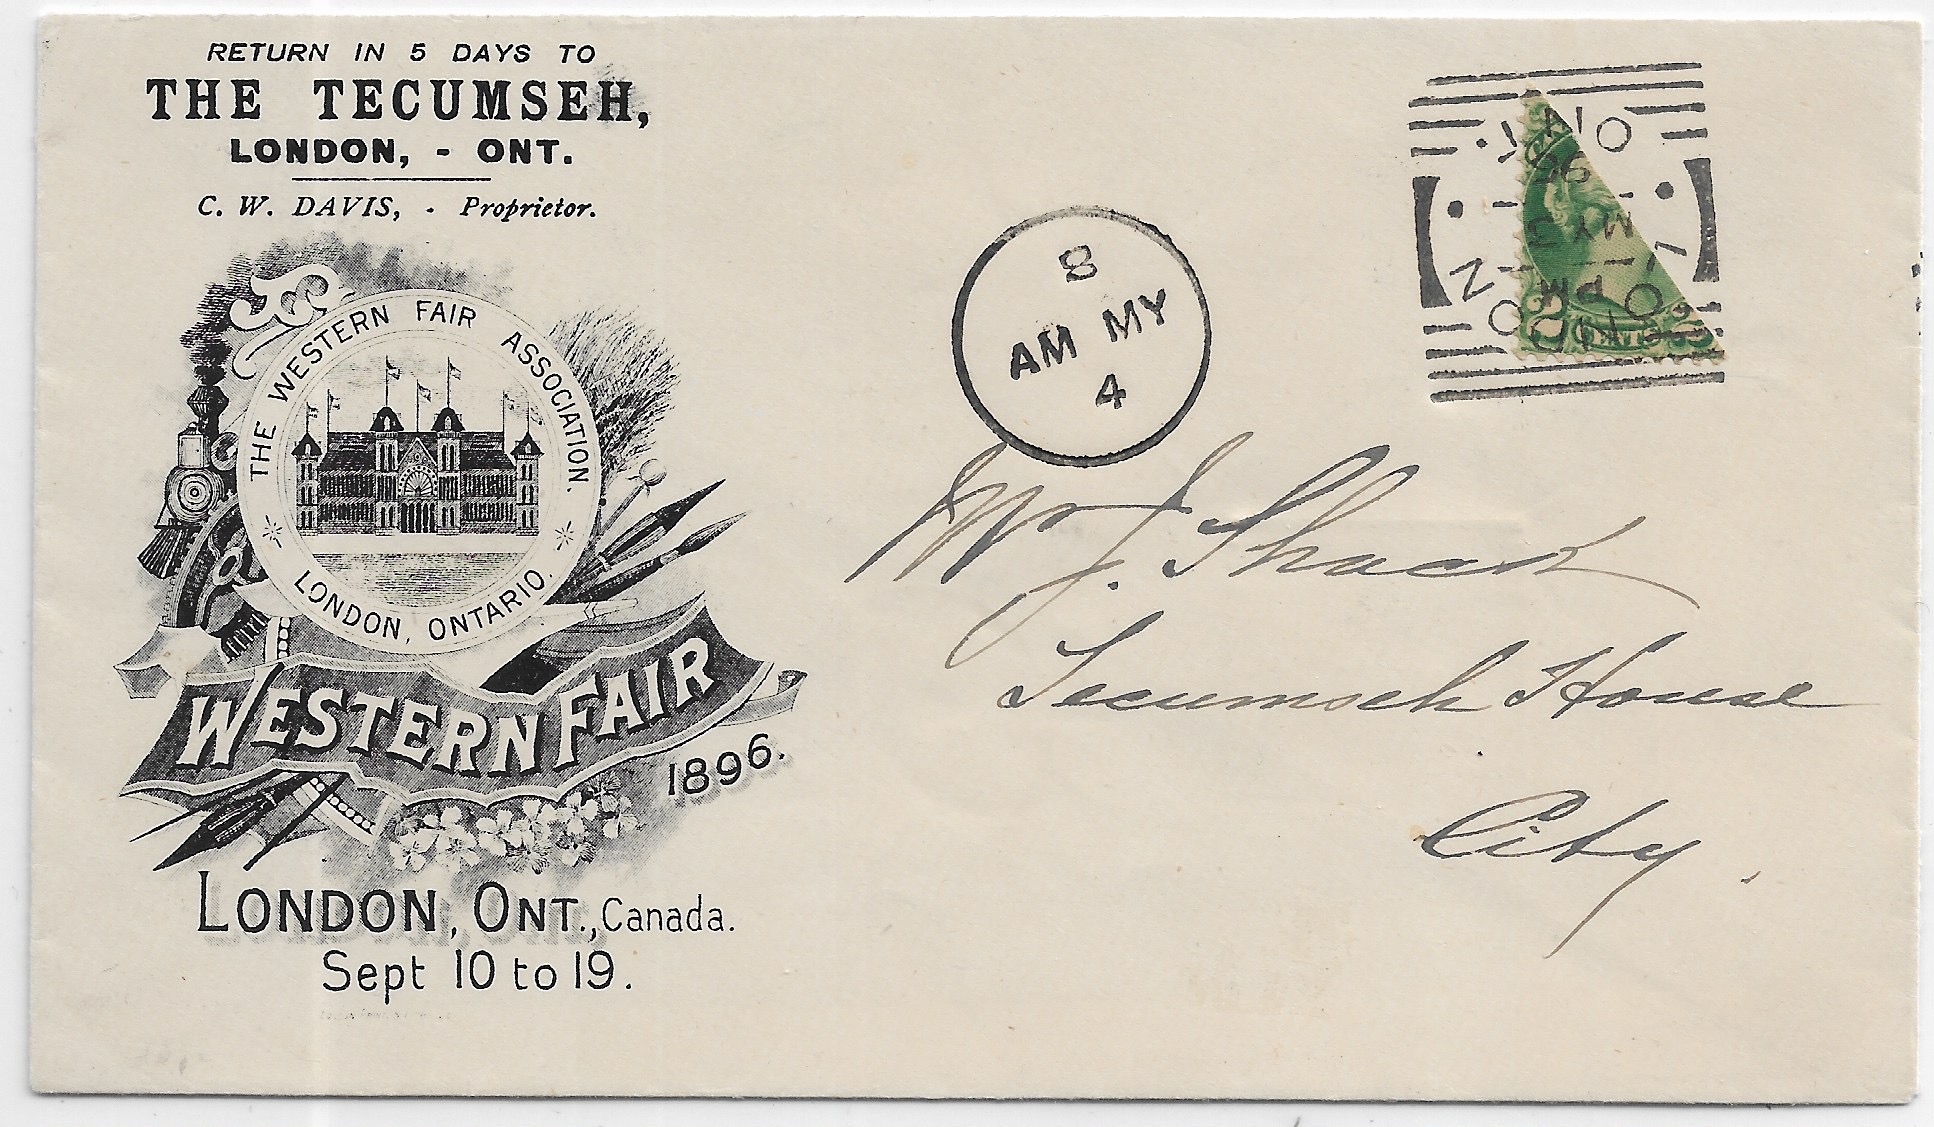 RETURN IN 5 DAYS TO
THE TECUMSEH,
LONDON, - ONT.
C. W. DAVIS, - Proprietor.
THE WESTERN FAIR ASSOCIATION.
LONDON, ONTARIO.
WESTERN FAIR
1896.
LONDON, ONT., Canada.
Sept 10 to 19.
8
AM MY
4
LONDON
ONT.
PM
MY 3
96
2 CENTS 2
W J. Shack
Tecumseh House
City.